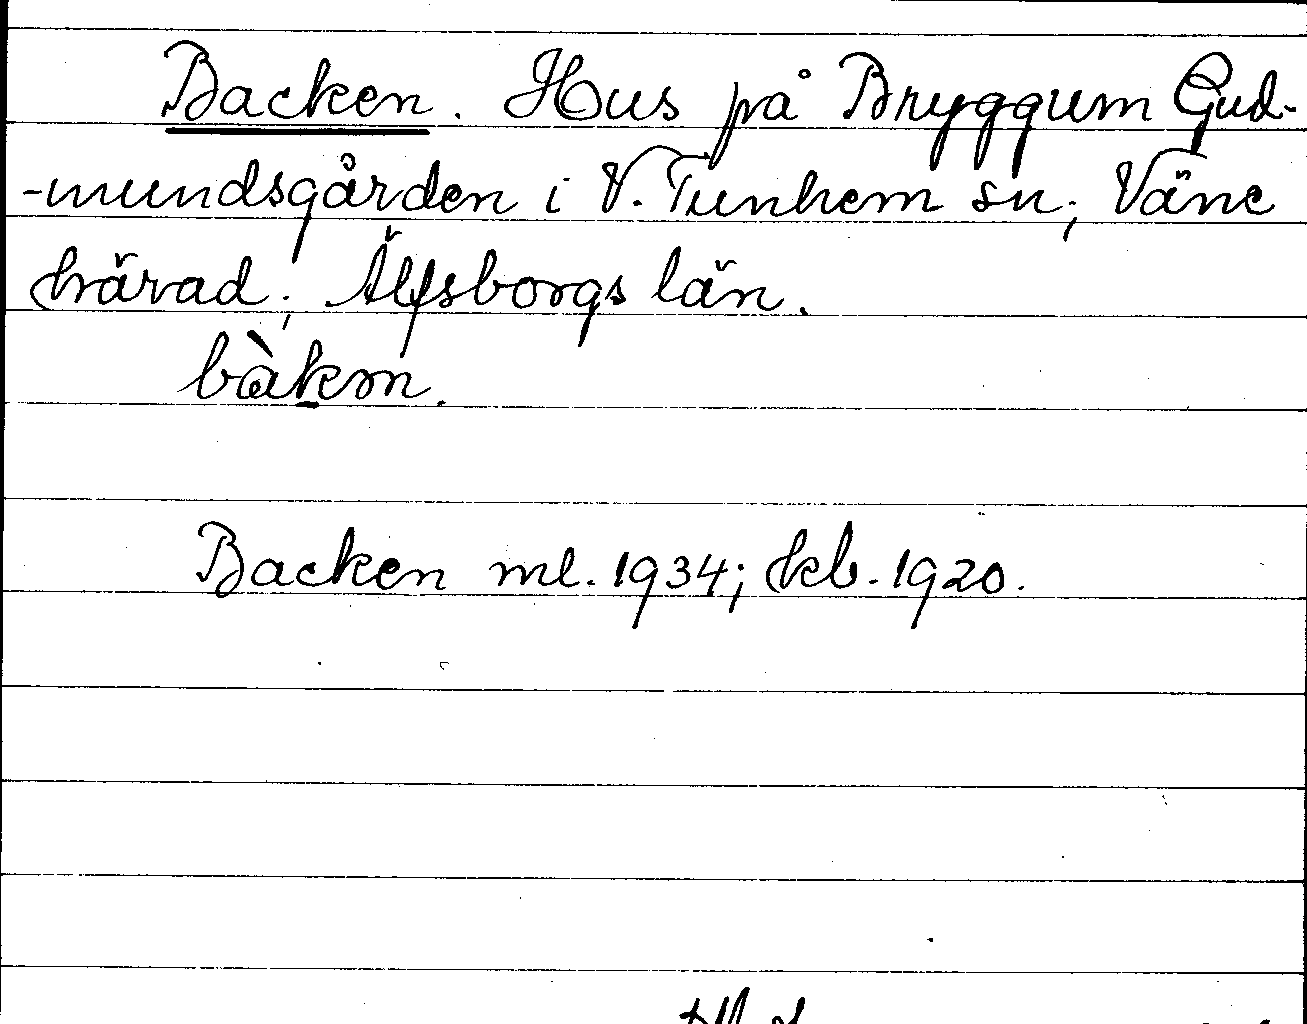 Backen. Hus på Bryggum Gud-
-mundsgården i V. Tunhem sn; Väne
härad; Älfsborgs län.
bàkm.
Backen ml. 1934; kb. 1920.